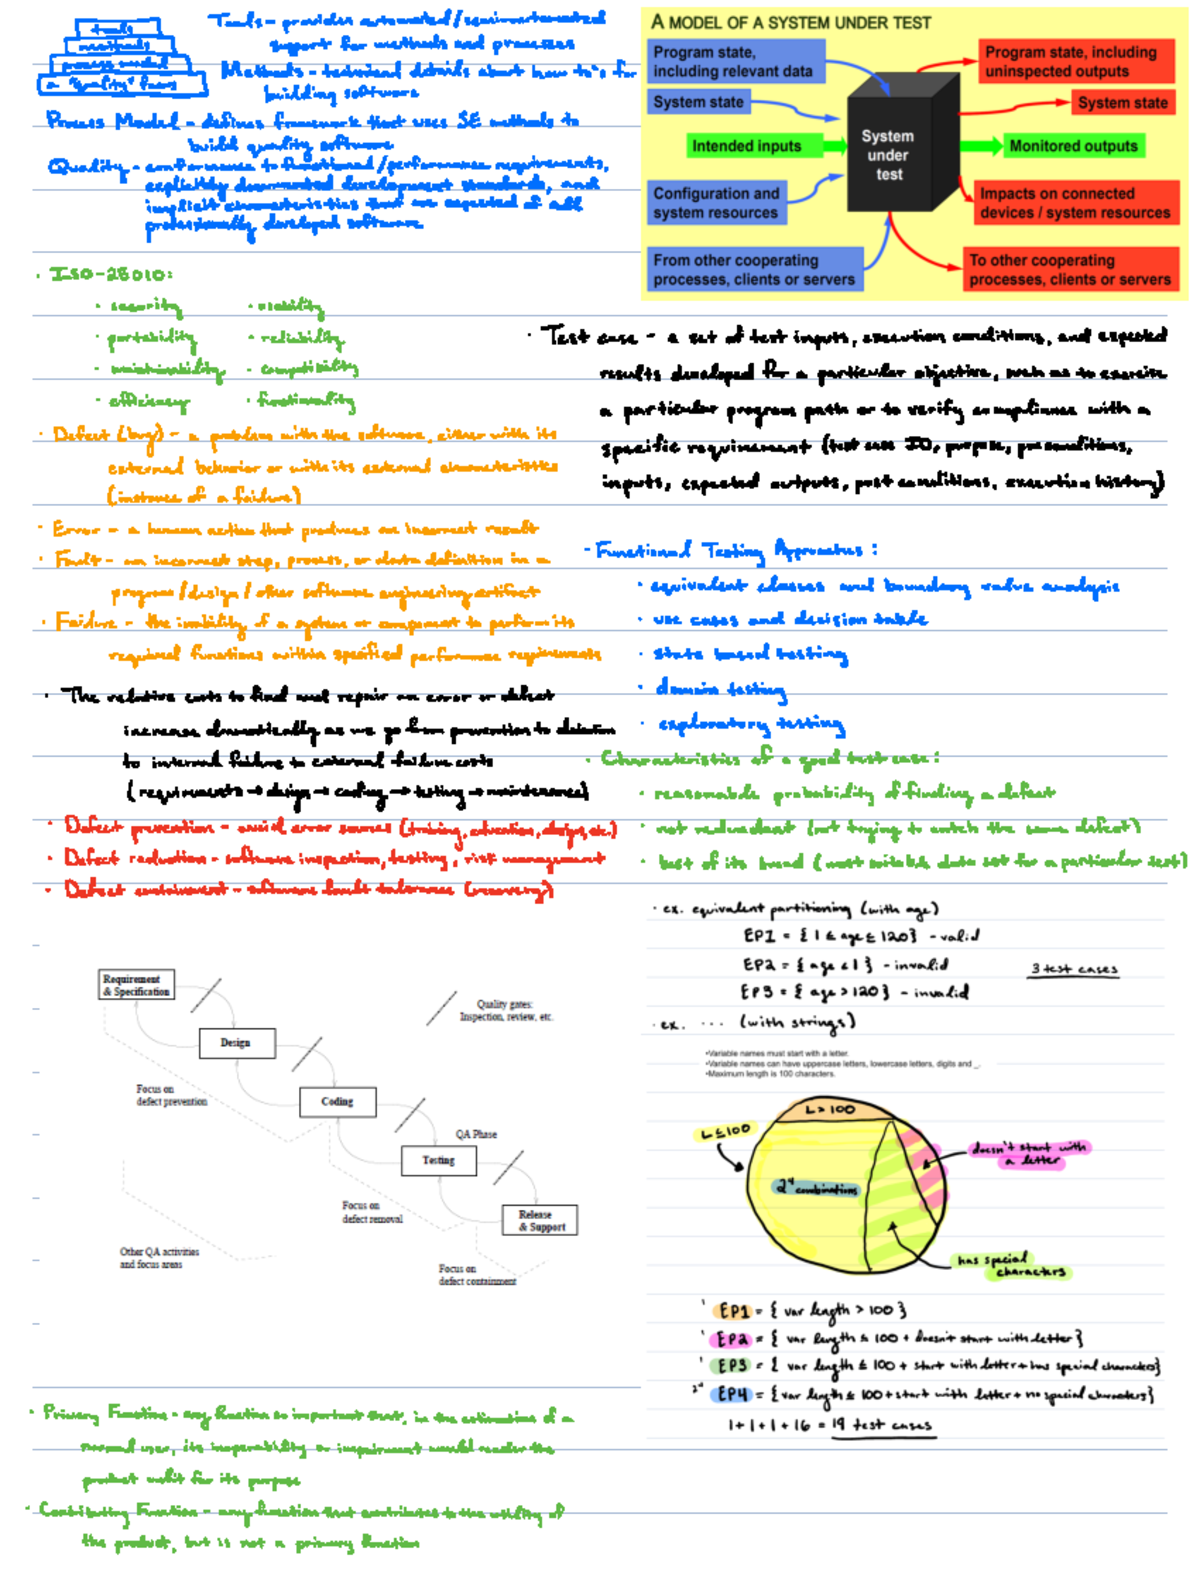 tools
methods
process model
a "quality" focus
Tools - provides automated/semiautomated
support for methods and processes
Methods - technical details about how to's for
building software
Process Model - defines framework that uses SE methods to
build quality software
Quality - conformance to functional/performance requirements,
explicitly documented development standards, and
implicit characteristics that are expected of all
professionally developed software
A MODEL OF A SYSTEM UNDER TEST
Program state,
including relevant data
System state
Intended inputs
Configuration and
system resources
From other cooperating
processes, clients or servers
System
under
test
Program state, including
uninspected outputs
System state
Monitored outputs
Impacts on connected
devices / system resources
To other cooperating
processes, clients or servers
· ISO-25010:
· security · usability
· portability · reliability
· maintainability · compatibility
· efficiency · functionality
· Defect (bug) - a problem with the software, either with its
external behavior or with its external characteristics
(instance of a failure)
· Error - a human action that produces an incorrect result
· Fault - an incorrect step, process, or data definition in a
program/design/other software engineering artifact
· Failure - the inability of a system or component to perform its
required functions within specified performance requirements
· The relative costs to find and repair an error or defect
increase dramatically as we go from prevention to detection
to internal failure to external failure costs
(requirements → design → coding → testing → maintenance)
· Defect prevention - avoid error sources (training, education, design, etc.)
· Defect reduction - software inspection, testing, risk management
· Defect containment - software fault tolerance (recovery)
· Test case - a set of test inputs, execution conditions, and expected
results developed for a particular objective, such as to exercise
a particular program path or to verify compliance with a
specific requirement (test case ID, purpose, preconditions,
inputs, expected outputs, post conditions, execution history)
- Functional Testing Approaches:
· equivalent classes and boundary value analysis
· use cases and decision table
· state based testing
· domain testing
· exploratory testing
· Characteristics of a good test case:
· reasonable probability of finding a defect
· not redundant (not trying to catch the same defect)
· best of its breed (most suitable data set for a particular test)
Requirement
& Specification
Design
Coding
Testing
Release
& Support
Quality gates:
Inspection, review, etc.
Focus on
defect prevention
QA Phase
Focus on
defect removal
Other QA activities
and focus areas
Focus on
defect containment
· ex. equivalent partitioning (with age)
EP1 = {1 ≤ age ≤ 120} - valid
EP2 = {age < 1} - invalid
EP3 = {age > 120} - invalid
3 test cases
· ex. ... (with strings)
•Variable names must start with a letter.
•Variable names can have uppercase letters, lowercase letters, digits and _.
•Maximum length is 100 characters.
L > 100
L ≤ 100
2⁴ combinations
doesn't start with
a letter
has special
characters
1 EP1 = {var length > 100}
1 EP2 = {var length ≤ 100 + doesn't start with letter}
1 EP3 = {var length ≤ 100 + start with letter + has special characters}
2⁴ EP4 = {var length ≤ 100 + start with letter + no special characters}
1 + 1 + 1 + 16 = 19 test cases
· Primary Function - any function so important that, in the estimation of a
normal user, its inoperability or impairment would render the
product unfit for its purpose
· Contributing Function - any function that contributes to the utility of
the product, but is not a primary function